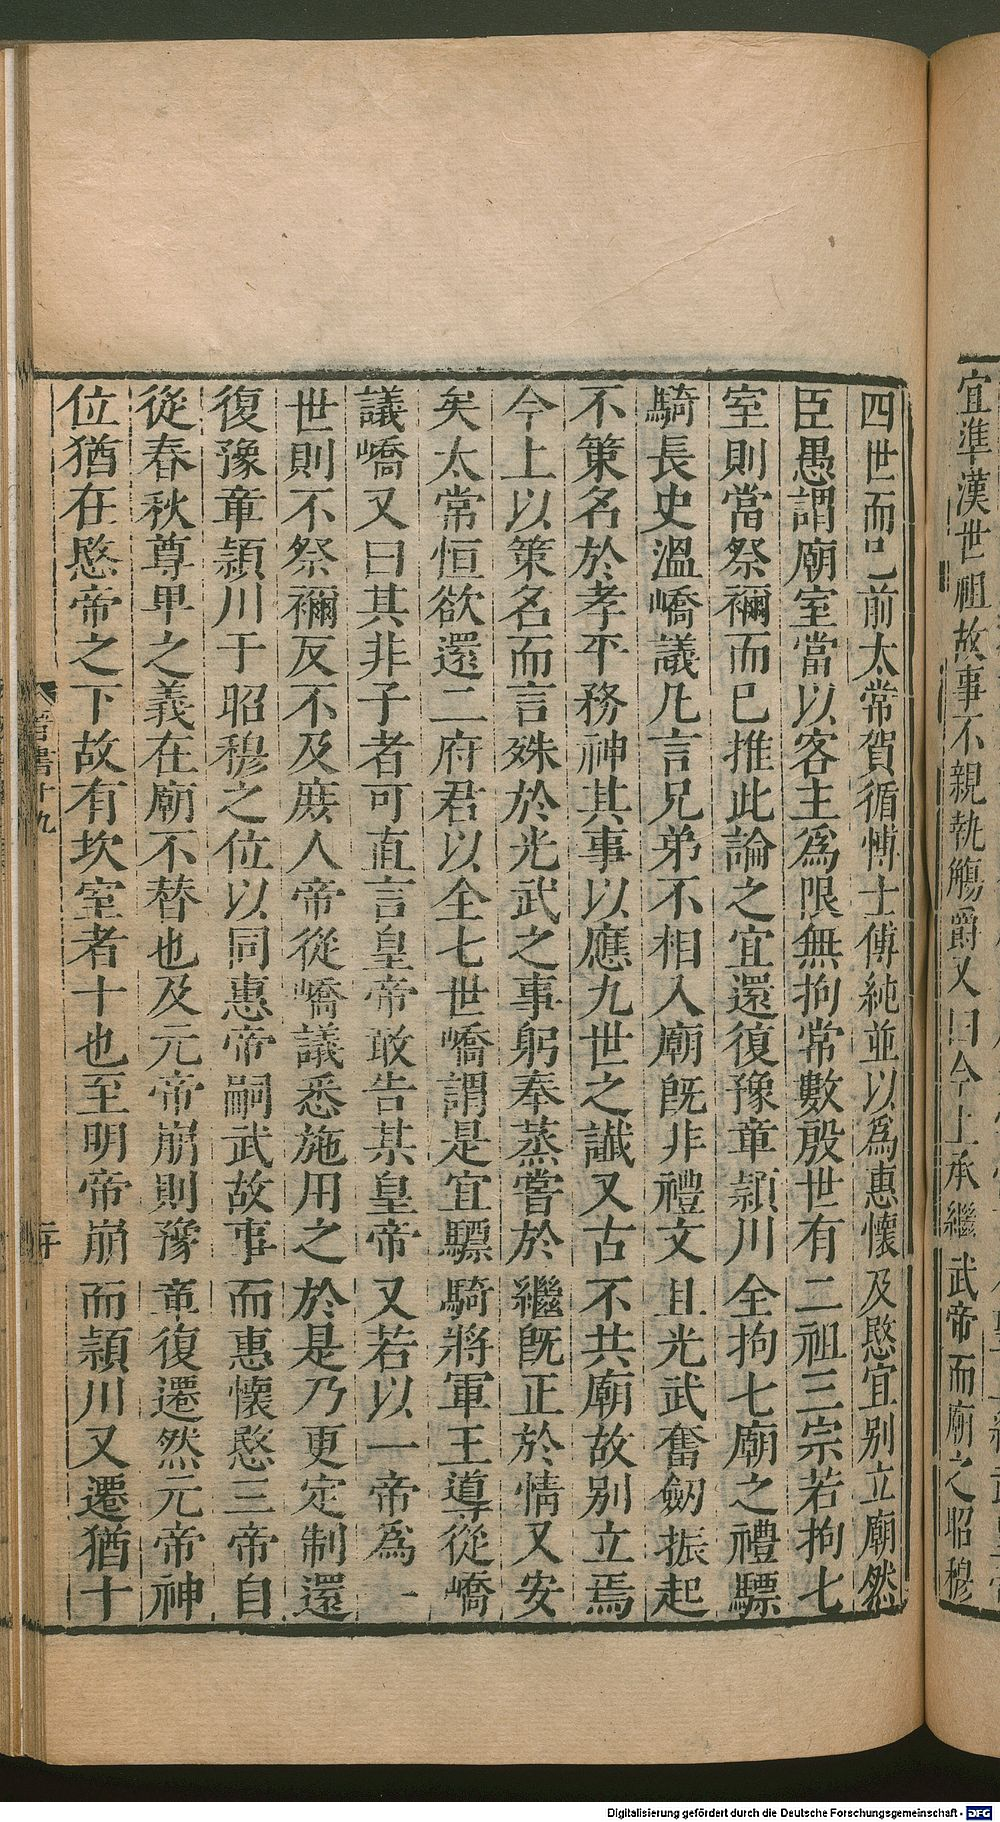 宜準漢世祖故事不親執觴爵又曰今上承繼武帝而廟之昭穆
四世而已前太常賀循博士傅純並以爲惠懷及愍宜別立廟然
臣愚謂廟室當以客主爲限無拘常數殷世有二祖三宗若拘七
室則當祭禰而已推此論之宜還復豫章潁川全拘七廟之禮驃
騎長史溫嶠議凡言兄弟不相入廟旣非禮文且光武奮劒振起
不策名於孝平務神其事以應九世之讖又古不共廟故別立焉
今上以策名而言殊於光武之事躬奉蒸嘗於繼旣正於情又安
矣太常恒欲還二府君以全七世嶠謂是宜驃騎將軍王導從嶠
議嶠又曰其非子者可直言皇帝敢告某皇帝又若以一帝爲一
世則不祭禰反不及庶人帝從嶠議悉施用之於是乃更定制還
復豫章潁川于昭穆之位以同惠帝嗣武故事而惠懷愍三帝自
從春秋尊卑之義在廟不替也及元帝崩則豫章復遷然元帝神
位猶在愍帝之下故有坎室者十也至明帝崩而潁川又遷猶十
晉書十九
二十
Digitalisierung gefördert durch die Deutsche Forschungsgemeinschaft - DFG